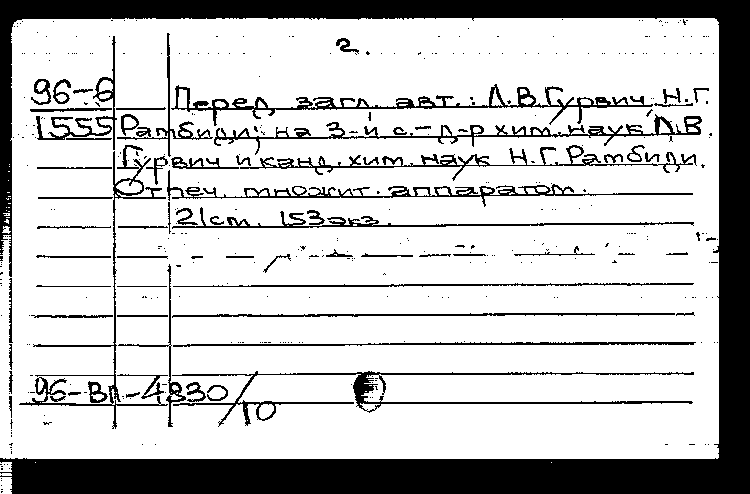 2.
96-6 Перед загл. авт.: Л.В.Гурвич, Н.Г.
1555 Рамбиди; на 3-й с.-д-р хим. наук Л.В.
Гурвич и канд. хим. наук Н.Г. Рамбиди.
Отпеч. множит. аппаратом.
21см. 153экз.
96-Вл-4830/10